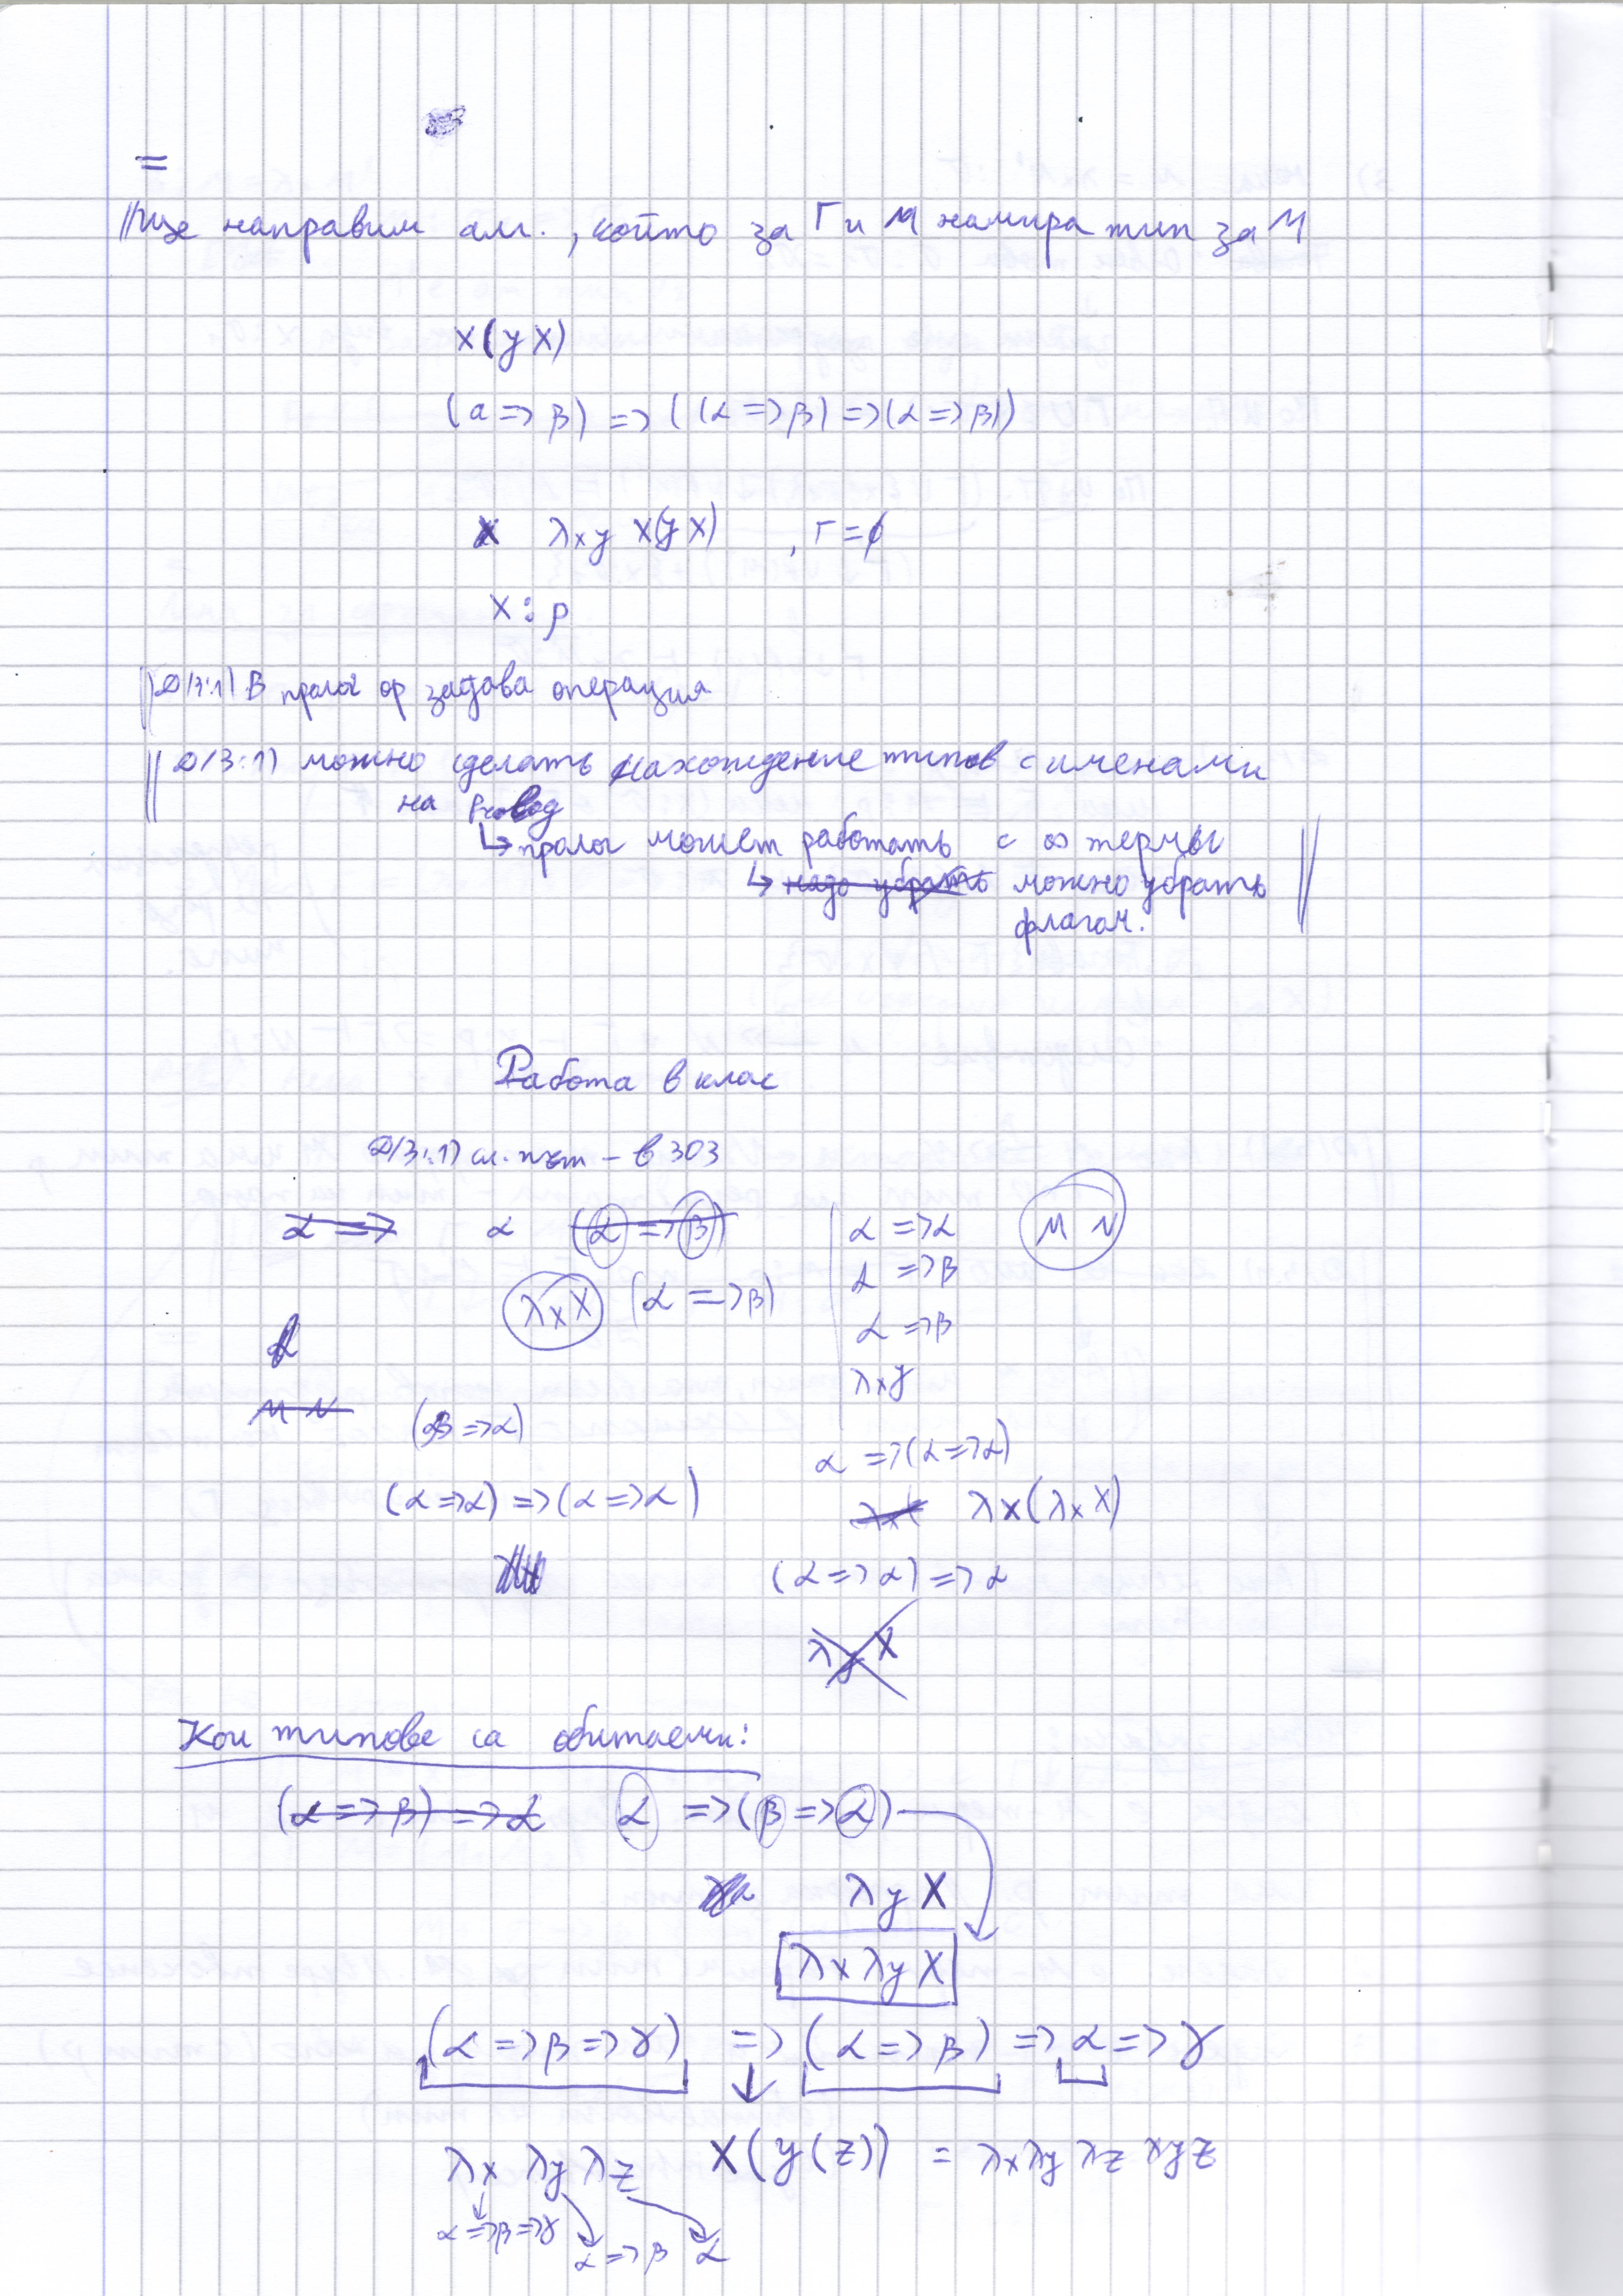 =
Ще направим алг., който за Γ и M намира тип за M
x(yx)
(α => β) => ((α => β) => (α => β))
λxy x(yx) , Γ = ∅
x : ρ
В пролог op задава операция
можно сделать нахождение типов с именами
на
↳ пролог может работать с ∞ термы
↳ надо убрать можно убрать
флагом.
Работа в клас
сл. път - в 303
α => α (α => β) α => α M N
λx x (α => β) α => β
α => β
λxy
M N (β => α)
α => (α => α)
(α => α) => (α => α) λx( λx(λx x)
(α => α) => α
λy x
Кои типове са обитаеми:
(α => β) => α α => (β => α)
λy x
λx λy x
(α => β => γ) => (α => β) => α => γ
λx λy λz x(y(z)) = λx λy λz xyz
α => β => γ
α => β α